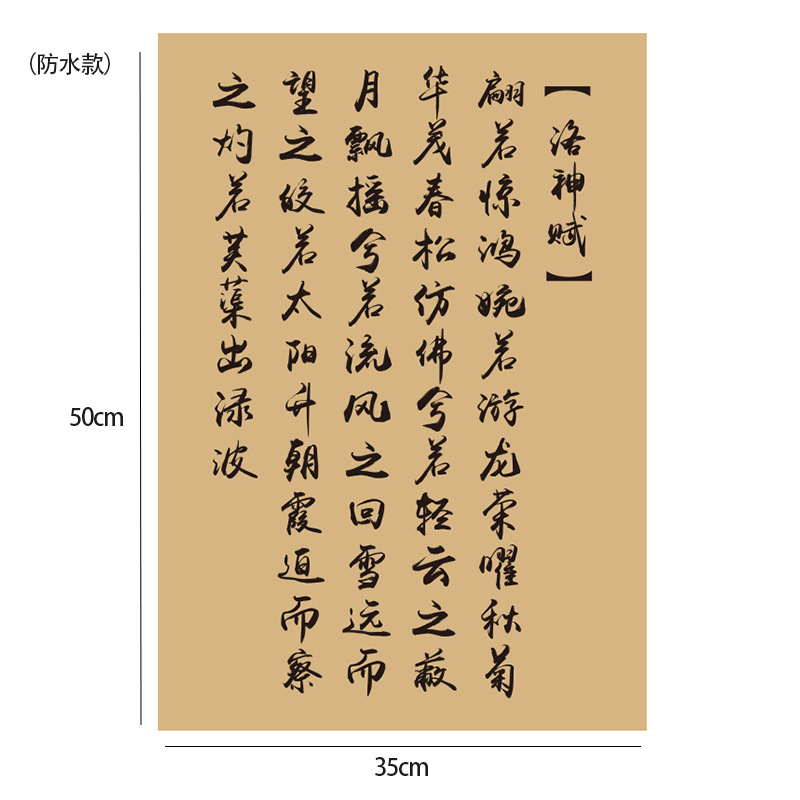 （防水款）
【洛神赋】
翩若惊鸿婉若游龙荣曜秋菊
华茂春松仿佛兮若轻云之蔽
月飘摇兮若流风之回雪远而
望之皎若太阳升朝霞迫而察
之灼若芙蕖出渌波
50cm
35cm